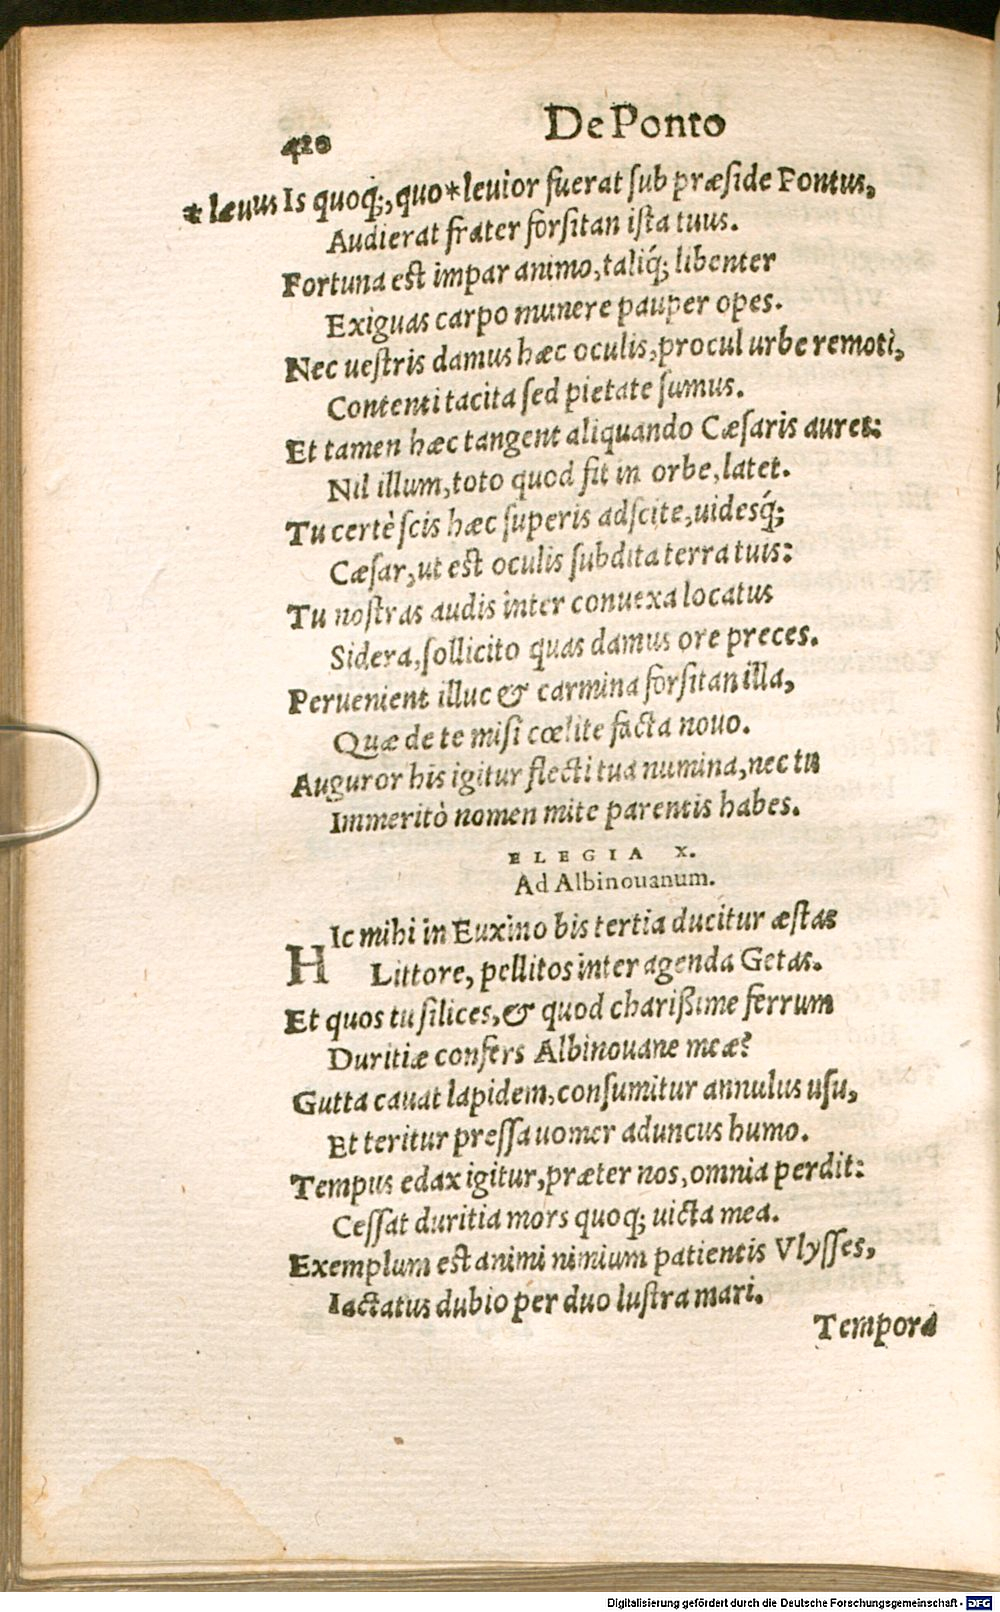 420 De Ponto
* læuus Is quoq;, quo * leuior fuerat ſub præſide Pontus,
Audierat frater forſitan iſta tuus.
Fortuna est impar animo, taliq́; libenter
Exiguas carpo munere pauper opes.
Nec ueſtris damus hæc oculis, procul urbe remoti,
Contenti tacita ſed pietate ſumus.
Et tamen hæc tangent aliquando Cæſaris aures:
Nil illum, toto quod fit in orbe, latet.
Tu certè ſcis hæc ſuperis adſcite, uidesq́;
Cæſar, ut est oculis ſubdita terra tuis:
Tu noſtras audis inter conuexa locatus
Sidera, ſollicito quas damus ore preces.
Peruenient illuc & carmina forſitan illa,
Quæ de te miſi cœlite facta nouo.
Auguror his igitur flecti tua numina, nec tu
Immeritò nomen mite parentis habes.
ELEGIA X.
Ad Albinouanum.
HIc mihi in Euxino bis tertia ducitur æstas
Littore, pellitos inter agenda Getas.
Et quos tu ſilices, & quod charißime ferrum
Duritiæ confers Albinouane meæ?
Gutta cauat lapidem, conſumitur annulus uſu,
Et teritur preſſa uomer aduncus humo.
Tempus edax igitur, præter nos, omnia perdit:
Ceſſat duritia mors quoq; uicta mea.
Exemplum est animi nimium patientis Vlyſſes,
Iactatus dubio per duo luſtra mari.
Tempora
Digitalisierung gefördert durch die Deutsche Forschungsgemeinschaft - DFG